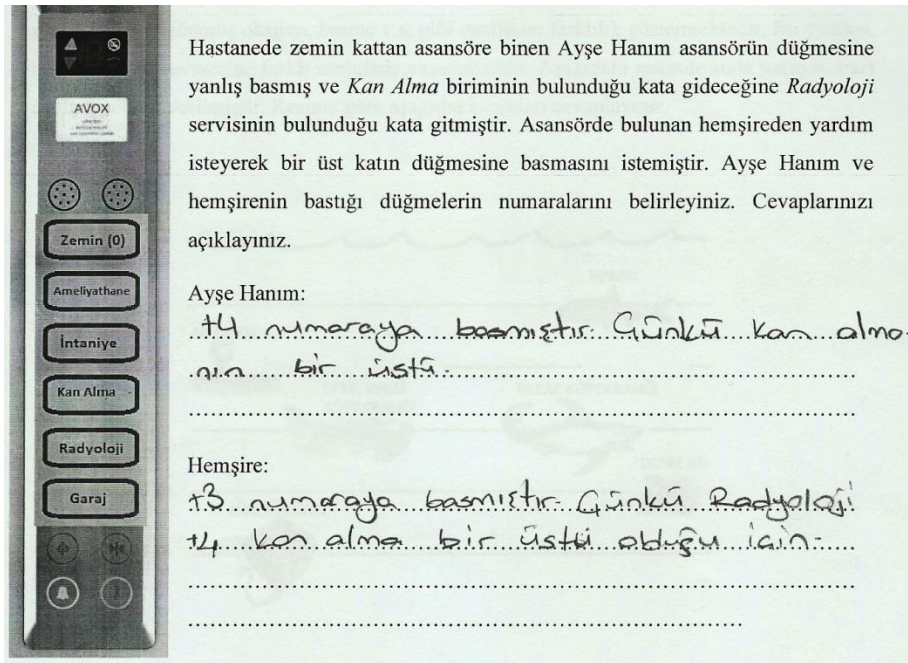 AVOX
Zemin (0)
Ameliyathane
İntaniye
Kan Alma
Radyoloji
Garaj
Hastanede zemin kattan asansöre binen Ayşe Hanım asansörün düğmesine
yanlış basmış ve Kan Alma biriminin bulunduğu kata gideceğine Radyoloji
servisinin bulunduğu kata gitmiştir. Asansörde bulunan hemşireden yardım
isteyerek bir üst katın düğmesine basmasını istemiştir. Ayşe Hanım ve
hemşirenin bastığı düğmelerin numaralarını belirleyiniz. Cevaplarınızı
açıklayınız.
Ayşe Hanım:
+4 numaraya basmıştır. Günkü Kan alma-
nın bir üstü.
Hemşire:
+3 numaraya basmıştır. Günkü Radyoloji
+4 kan alma bir üstü olduğu için.